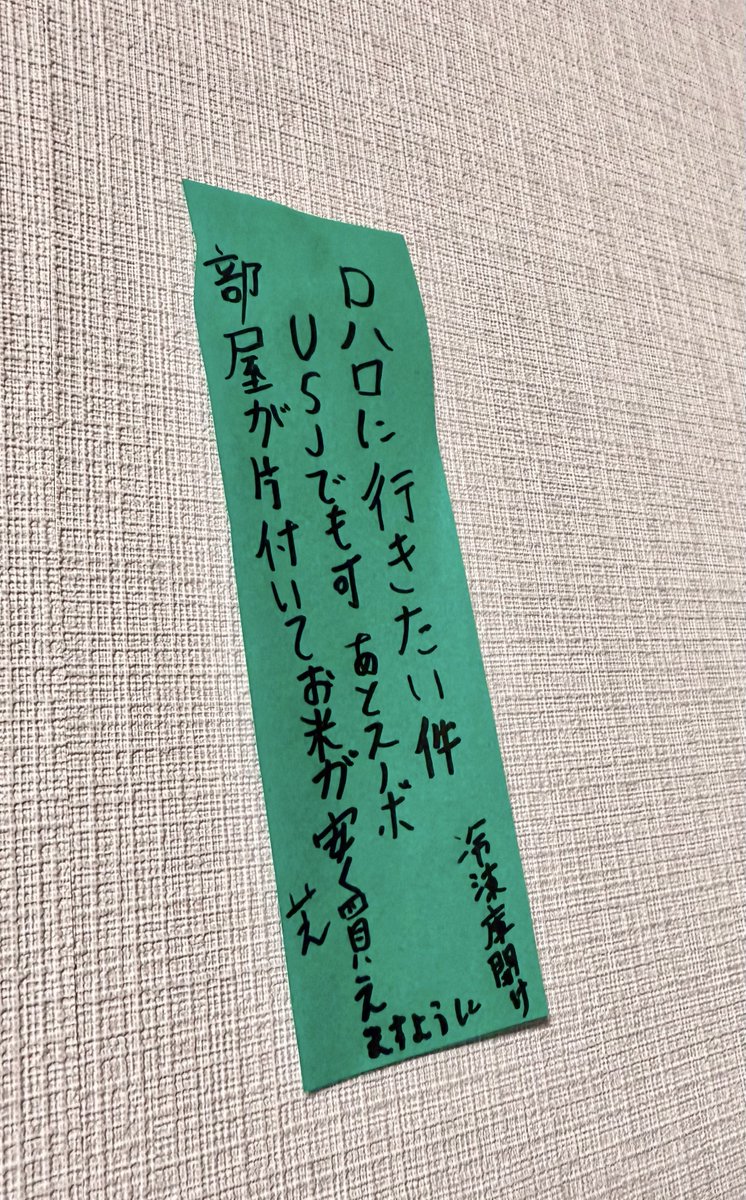 Dハロに行きたい件
USJでも可 あとスノボ
部屋が片付いてお米が安く買え
ますように
冷凍庫開け